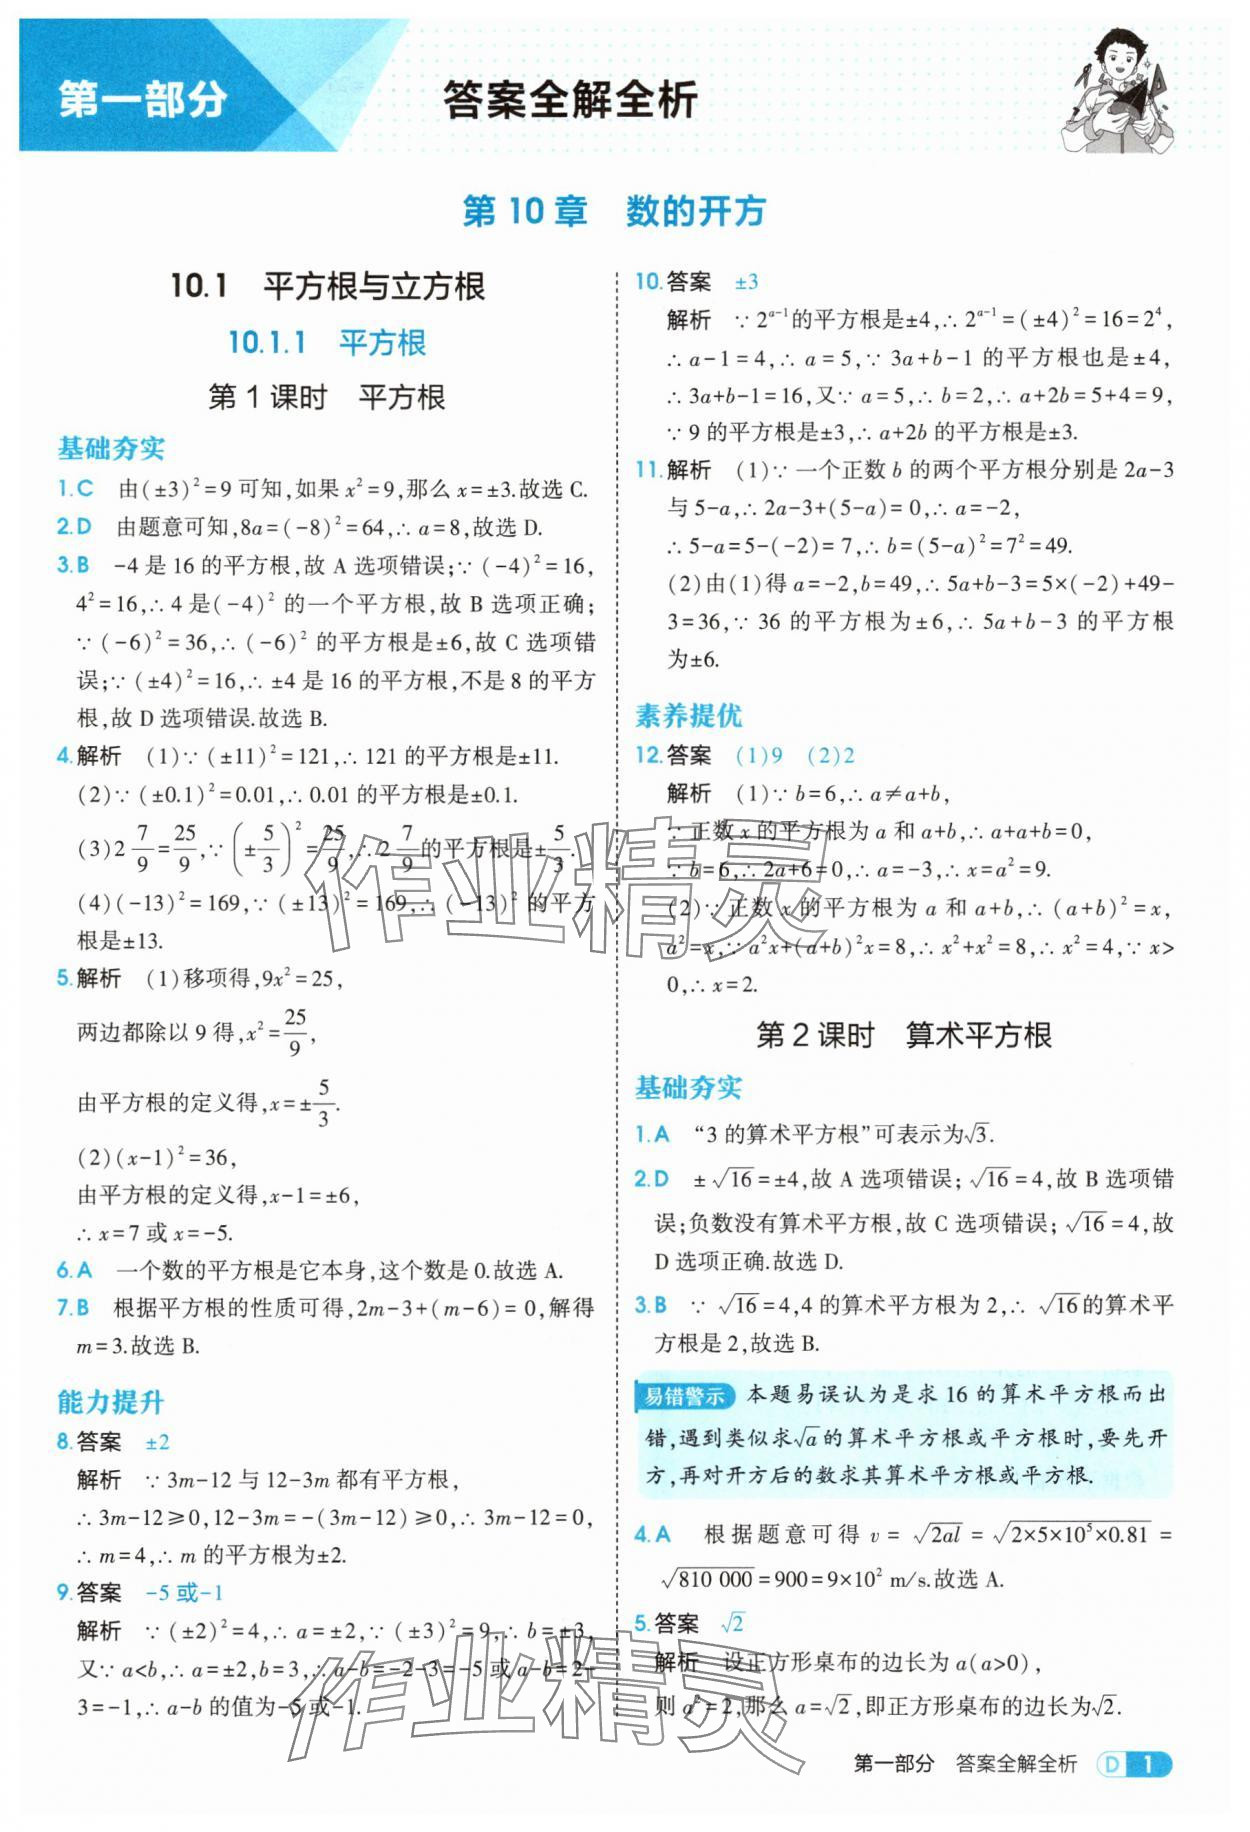 第一部分
答案全解全析
第 10 章 数的开方
10.1 平方根与立方根
10.1.1 平方根
第 1 课时 平方根
基础夯实
1.C 由(±3)²=9 可知,如果 x²=9,那么 x=±3.故选 C.
2.D 由题意可知,8a=(-8)²=64,∴a=8,故选 D.
3.B -4 是 16 的平方根,故 A 选项错误;∵(-4)²=16,
4²=16,∴4 是(-4)² 的一个平方根,故 B 选项正确;
∵(-6)²=36,∴(-6)² 的平方根是±6,故 C 选项错
误;∵(±4)²=16,∴±4 是 16 的平方根,不是 8 的平方
根,故 D 选项错误.故选 B.
4.解析 (1)∵(±11)²=121,∴121 的平方根是±11.
(2)∵(±0.1)²=0.01,∴0.01 的平方根是±0.1.
(3)2 7/9=25/9,∵(±5/3)²=25/9,∴2 7/9的平方根是±5/3.
(4)(-13)²=169,∵(±13)²=169,∴(-13)² 的平方
根是±13.
5.解析 (1)移项得,9x²=25,
两边都除以 9 得,x²=25/9,
由平方根的定义得,x=±5/3.
(2)(x-1)²=36,
由平方根的定义得,x-1=±6,
∴x=7 或 x=-5.
6.A 一个数的平方根是它本身,这个数是 0.故选 A.
7.B 根据平方根的性质可得,2m-3+(m-6)=0,解得
m=3.故选 B.
能力提升
8.答案 ±2
解析 ∵3m-12 与 12-3m 都有平方根,
∴3m-12≥0,12-3m=-(3m-12)≥0,∴3m-12=0,
∴m=4,∴m 的平方根为±2.
9.答案 -5 或-1
解析 ∵(±2)²=4,∴a=±2,∵(±3)²=9,∴b=±3,
又∵a<b,∴a=±2,b=3,∴a-b=-2-3=-5 或 a-b=2-
3=-1,∴a-b 的值为-5 或-1.
10.答案 ±3
解析 ∵2ᵃ⁻¹的平方根是±4,∴2ᵃ⁻¹=(±4)²=16=2⁴,
∴a-1=4,∴a=5,∵3a+b-1 的平方根也是±4,
∴3a+b-1=16,又∵a=5,∴b=2,∴a+2b=5+4=9,
∵9 的平方根是±3,∴a+2b 的平方根是±3.
11.解析 (1)∵一个正数 b 的两个平方根分别是 2a-3
与 5-a,∴2a-3+(5-a)=0,∴a=-2,
∴5-a=5-(-2)=7,∴b=(5-a)²=7²=49.
(2)由(1)得 a=-2,b=49,∴5a+b-3=5×(-2)+49-
3=36,∵36 的平方根为±6,∴5a+b-3 的平方根
为±6.
素养提优
12.答案 (1)9 (2)2
解析 (1)∵b=6,∴a≠a+b,
∵正数 x 的平方根为 a 和 a+b,∴a+a+b=0,
∵b=6,∴2a+6=0,∴a=-3,∴x=a²=9.
(2)∵正数 x 的平方根为 a 和 a+b,∴(a+b)²=x,
a²=x,∵a²x+(a+b)²x=8,∴x²+x²=8,∴x²=4,∵x>
0,∴x=2.
第 2 课时 算术平方根
基础夯实
1.A “3 的算术平方根”可表示为√3.
2.D ±√16=±4,故 A 选项错误;√16=4,故 B 选项错
误;负数没有算术平方根,故 C 选项错误;√16=4,故
D 选项正确.故选 D.
3.B ∵√16=4,4 的算术平方根为 2,∴√16的算术平
方根是 2,故选 B.
易错警示 本题易误认为是求 16 的算术平方根而出
错,遇到类似求√a的算术平方根或平方根时,要先开
方,再对开方后的数求其算术平方根或平方根.
4.A 根据题意可得 v=√(2al)=√(2×5×10⁵×0.81)=
√(810 000)=900=9×10² m/s.故选 A.
5.答案 √2
解析 设正方形桌布的边长为 a(a>0),
则 a²=2,那么 a=√2,即正方形桌布的边长为√2.
第一部分 答案全解全析 D 1
作业精灵
作业精灵